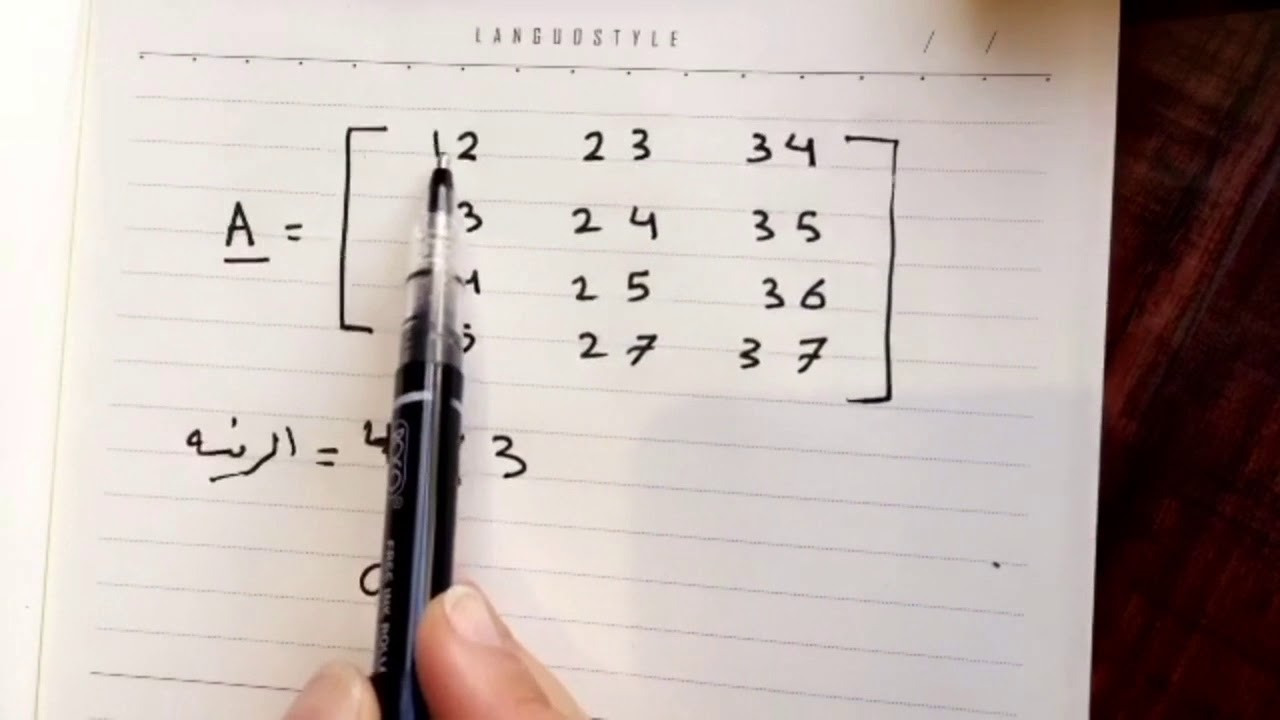 LANGUOSTYLE / /
12 23 34
A = 3 24 35
4 25 36
5 27 37
الرتبه = 4 3